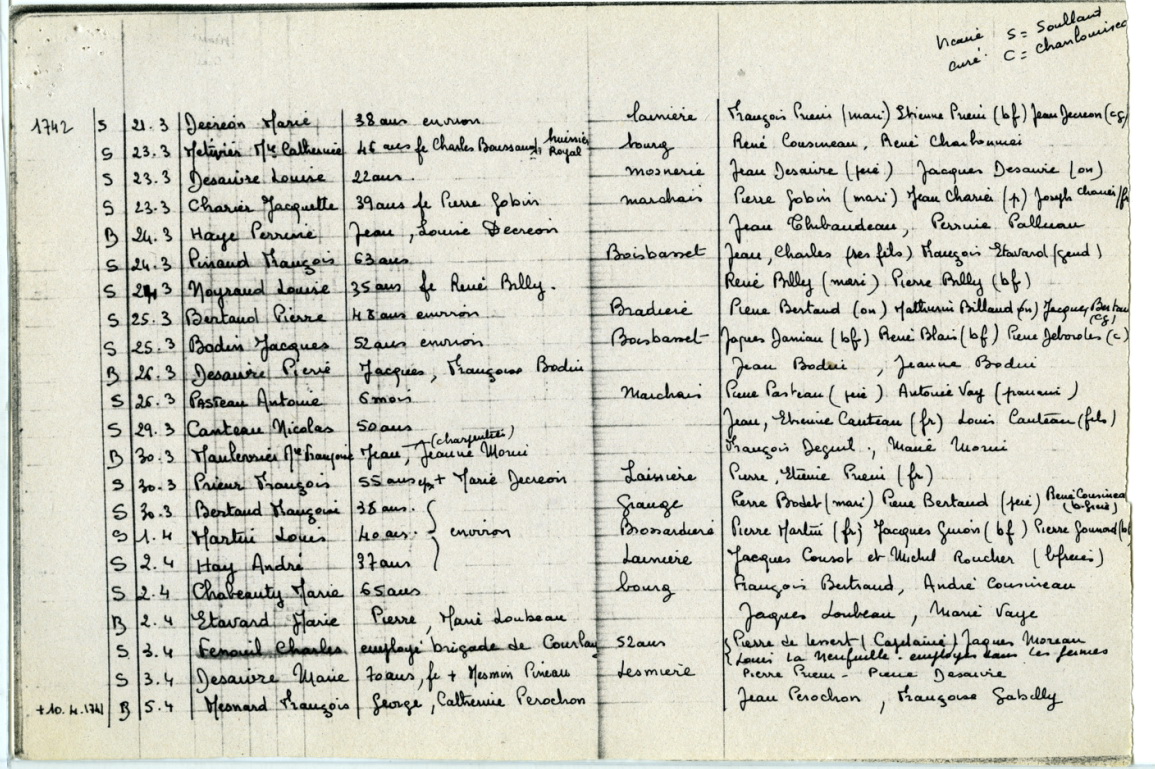 Vicaire S = Soullard
curé C = Charlouiseau
1742 S 21.3 Decreon Marie 38 ans environ lainière François Prieur (mari) Etienne Prieur (bf) Jean Decreon (cg)
S 23.3 Metivier Mie Catherine 46 ans fe Charles Boussaud, huissier Royal bourg René Cousineau, René Charbonnier
S 23.3 Desaivre Louise 22 ans. mosnerie Jean Desaivre (père) Jacques Desaivre (on)
S 23.3 Charier Jacquette 39 ans fe Pierre Gobin marchais Pierre Gobin (mari) Jean Charier (p) Joseph charier/fr
B 24.3 Haye Perrine Jean, Louise Decreon Jean Thibaudeau, Perrine Palluau
S 24.3 Pinaud François 63 ans Boisbasset Jean, Charles (ses fils) François Etavard (gend)
S 24.3 Noyraud Louise 35 ans fe René Billy. René Billy (mari) Pierre Billy (bf)
S 25.3 Bertaud Pierre 48 ans environ Bradière Pierre Bertaud (on) Mathurin Billaud (on) Jacques Bertau (cg)
S 25.3 Bodin Jacques 52 ans environ Boisbasset Jaques Daniau (bf) René Blais (bf) Pierre (c)
B 26.3 Desaivre Pierre Jacques, Françoise Bodin Jean Bodin, Jeanne Bodin
S 26.3 Pasteau Antoine 6 mois Marchais Pierre Pasteau (père) Antoine Vay (parrain)
S 29.3 Canteau Nicolas 50 ans Jean, Etienne Canteau (fr) Louis Canteau (fils)
B 30.3 Maulevrier Mie Françoise Jean, (charpentier) Jeanne Morin François Deguil., Marie Morin
S 30.3 Prieur François 55 ans + Marie Decreon Laisnière Pierre, Etienne Prieur (fr)
S 30.3 Bertaud Françoise 38 ans. Grange Pierre Bodet (mari) Pierre Bertaud (père) René Cousinea (b. frère)
S 1.4 Martin Louis 40 ans. environ Brossardière Pierre Martin (fr) Jacques Guion (bf) Pierre Gounord (bf
S 2.4 Hay André 37 ans Lainière Jacques Cousot et Michel Roucher (bfrères)
S 2.4 Chabeauty Marie 65 ans bourg François Bertrand, André Cousineau
B 2.4 Etavard Marie Pierre, Marie Loubeau Jaques Loubeau, Marie Vaye
S 3.4 Fenouil Charles employé brigade de Courlay 52 ans Pierre de (Capitaine) Jaques Moreau
Louis La Neufuille. employés dans les fermes
S 3.4 Desaivre Marie 70 ans, fe + Mesmin Pineau Lesmière Pierre Prieur - Pierre Desaivre
+10.4.1742 B 5.4 Mesnard François George, Catherine Perochon Jean Perochon, Françoise Gabilly